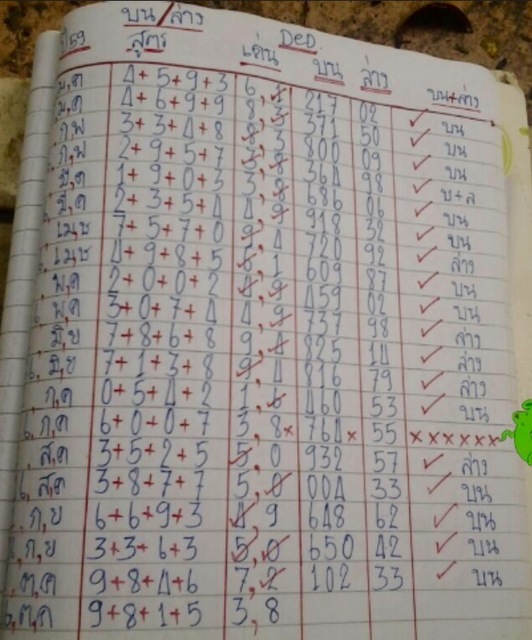 บน/ล่าง
59 สูตร เด่น DeD. บน ล่าง บน+ล่าง
ม,ค 4+5+9+3 6, 217 02 ✓ บน
ม,ค 4+6+9+9 8, 371 50 ✓ บน
ก,พ 3+3+4+8 800 09 ✓ บน
ก,พ 2+9+5+7 364 98 ✓ บ+ล
มี,ค 1+9+0+3 3,8 686 06 ✓ บน
มี,ค 2+3+5+4 4,9 918 32 ✓ บน
เมษ 7+5+7+0 9,4 720 92 ✓ ล่าง
เมษ 4+9+8+5 6,1 609 87 ✓ บน
พ,ค 2+0+0+2 4,9 459 02 ✓ บน
พ,ค 3+0+7+4 4,9 737 98 ✓ ล่าง
มิ,ย 7+8+6+8 9,4 825 14 ✓ ล่าง
มิ,ย 7+1+3+8 9,4 816 79 ✓ ล่าง
ก,ค 0+5+4+2 1,6 460 53 ✓ บน
ก,ค 6+0+0+7 3,8× 764× 55 ××××××
ส,ค 3+5+2+5 5,0 932 57 ✓ ล่าง
ส,ค 3+8+7+7 5,0 004 33 ✓ บน
ก,ย 6+6+9+3 4,9 648 62 ✓ บน
ก,ย 3+3+6+3 5,0 650 42 ✓ บน
ต,ค 9+8+4+6 7,2 102 33 ✓ บน
ต,ค 9+8+1+5 3,8